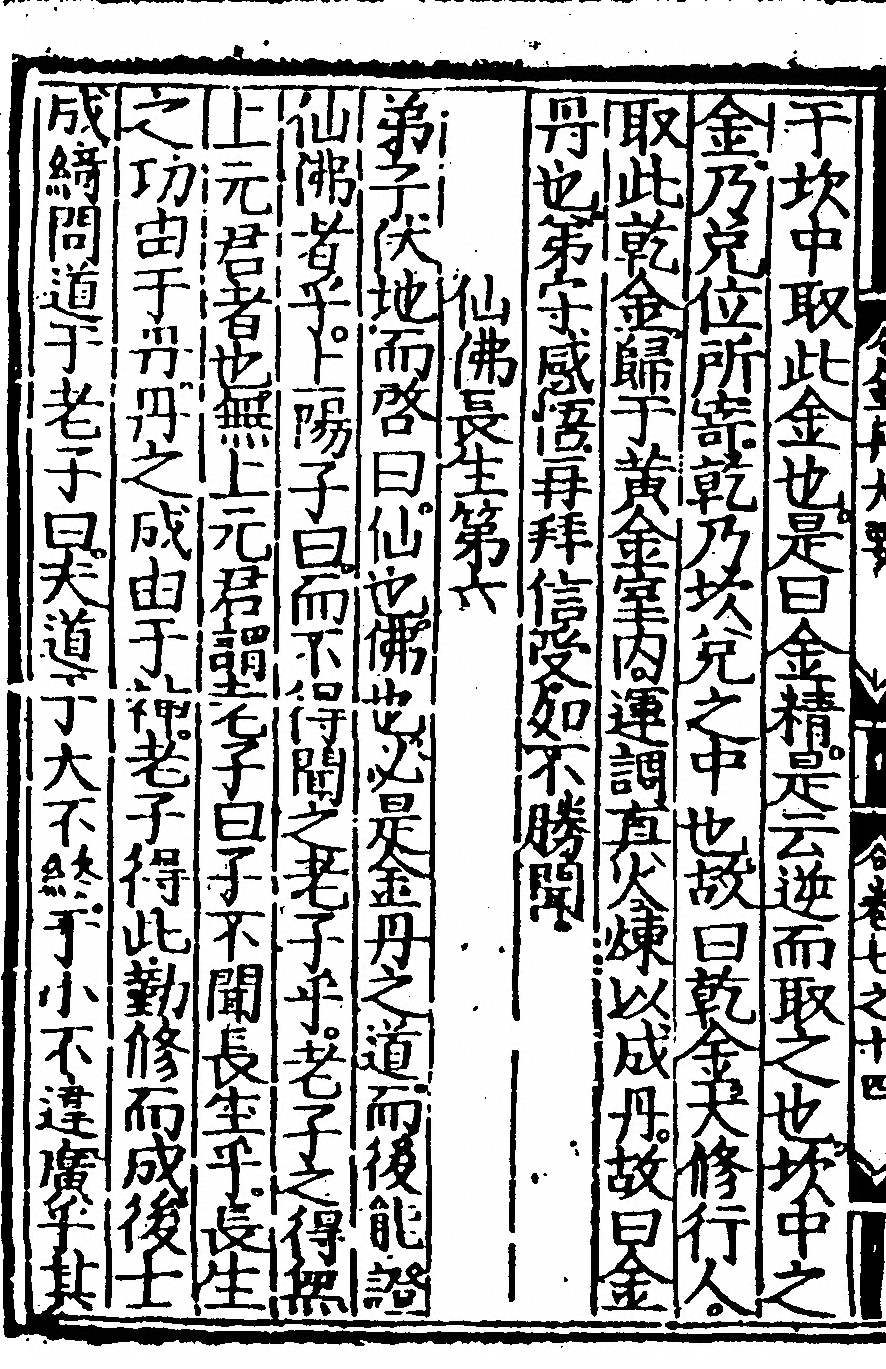 金丹大要
卷七之十四
于坎中取此金也是曰金精是云逆而取之也坎中之
金乃兌位所寄乾乃坎兌之中也故曰乾金大修行人
取此乾金歸于黃金室內運調真火煉以成丹故曰金
丹也第守感悟再拜信受如不勝聞
仙佛長生第六
弟子伏地而啓曰仙也佛也必是金丹之道而後能證
仙佛者乎上陽子曰而不得聞之老子乎老子之得無
上元君者也無上元君謂老子曰子不聞長生乎長生
之功由于丹丹之成由于神老子得此勤修而成後士
成綺問道于老子曰夫道于大不終于小不違廣乎其